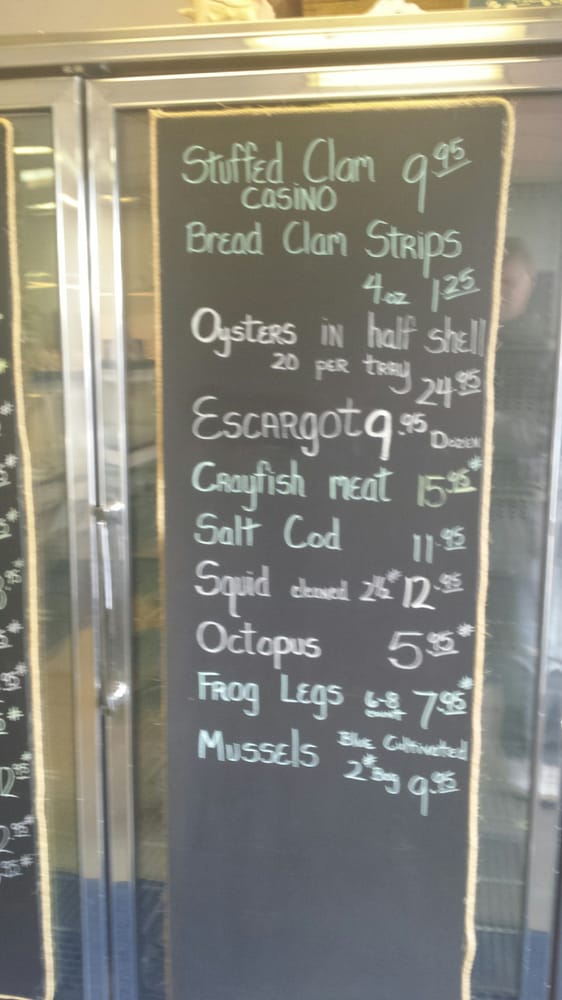 Stuffed Clam 9.95
CASINO
Bread Clam Strips
4 oz 1.25
Oysters in half shell
20 per tray 24.95
Escargot 9.95 Dozen
Crayfish meat 15.95#
Salt Cod 11.95
Squid cleaned 2½# 12.95
Octopus 5.95#
Frog Legs 6-8 count 7.95#
Mussels Blue Cultivated
2# Bag 9.95